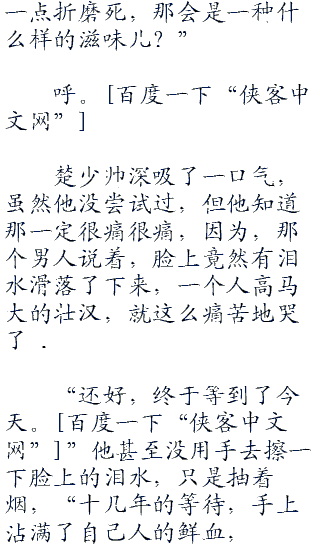 一点折磨死，那会是一种什
么样的滋味儿？”
呼。[百度一下“侠客中
文网”]
楚少帅深吸了一口气，
虽然他没尝试过，但他知道
那一定很痛很痛，因为，那
个男人说着，脸上竟然有泪
水滑落了下来，一个人高马
大的壮汉，就这么痛苦地哭
了．
“还好，终于等到了今
天。[百度一下“侠客中文
网”]”他甚至没用手去擦一
下脸上的泪水，只是抽着
烟，“十几年的等待，手上
沾满了自己人的鲜血，